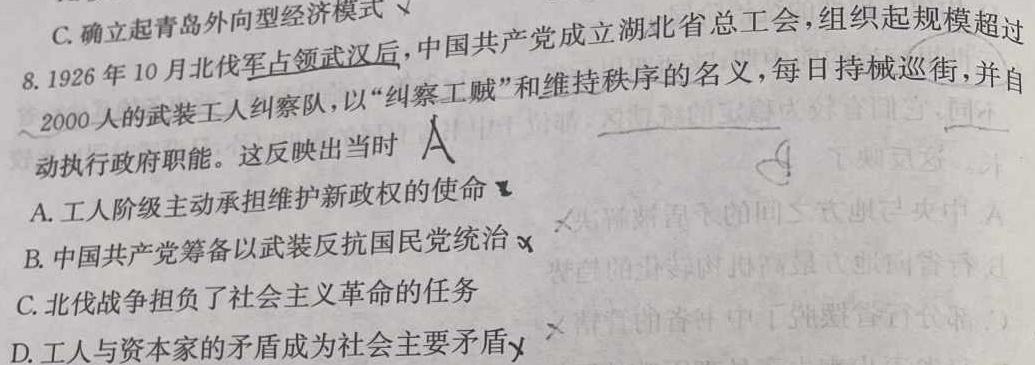 C. 确立起青岛外向型经济模式
8. 1926年10月北伐军占领武汉后,中国共产党成立湖北省总工会,组织起规模超过
2000人的武装工人纠察队,以“纠察工贼”和维持秩序的名义,每日持械巡街,并自
动执行政府职能。这反映出当时 A
A. 工人阶级主动承担维护新政权的使命
B. 中国共产党筹备以武装反抗国民党统治
C. 北伐战争担负了社会主义革命的任务
D. 工人与资本家的矛盾成为社会主要矛盾